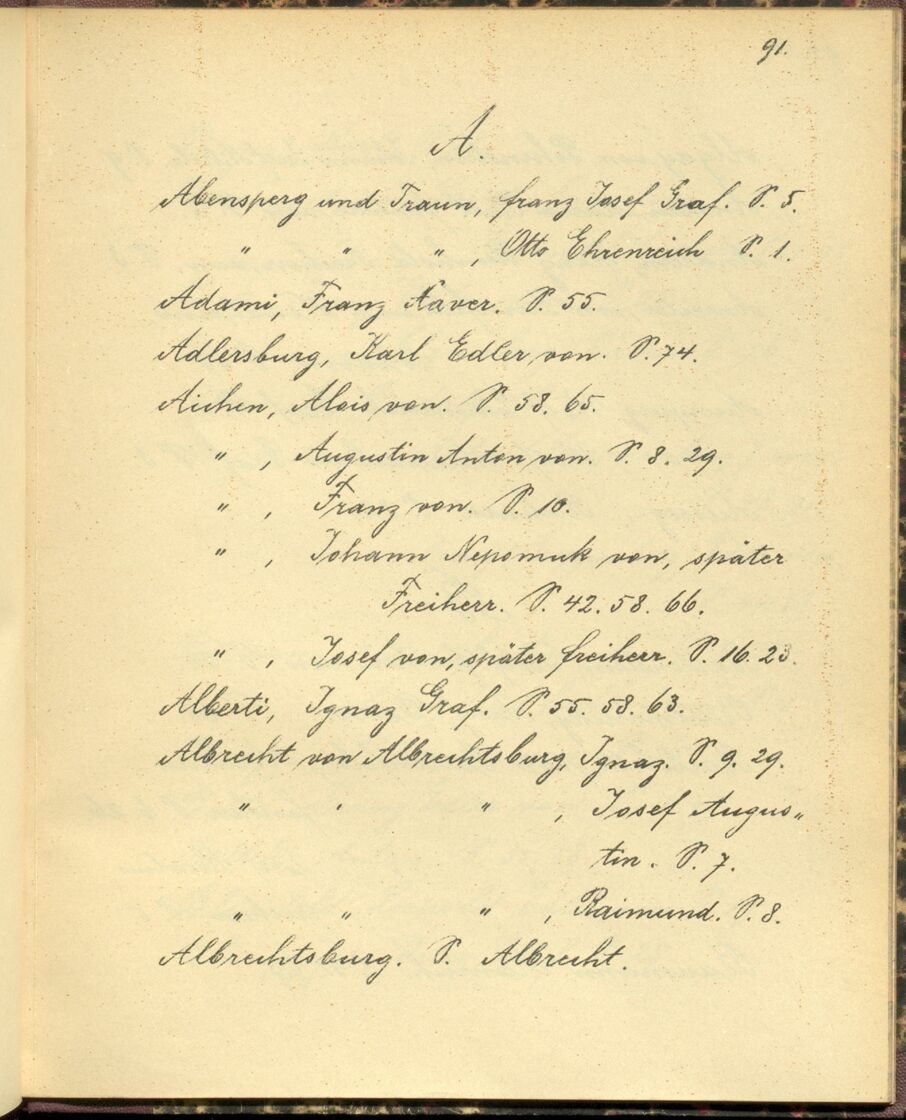 91.
A.
Abensperg und Traun, Franz Josef Graf. S. 5.
" " " , Otto Ehrenreich S. 1.
Adami, Franz Xaver. S. 55.
Adlersburg, Karl Edler von. S. 74.
Aichen, Alois von. S. 58. 65.
" , Augustin Anton von. S. 8. 29.
" , Franz von. S. 10.
" , Johann Nepomuk von, später
Freiherr. S. 42. 58. 66.
" , Josef von, später Freiherr. S. 16. 23.
Alberti, Ignaz Graf. S. 55. 58. 63.
Albrecht von Albrechtsburg, Ignaz. S. 9. 29.
" " " , Josef Augus„
tin. S. 7.
" " " , Raimund. S. 8.
Albrechtsburg. S. Albrecht.